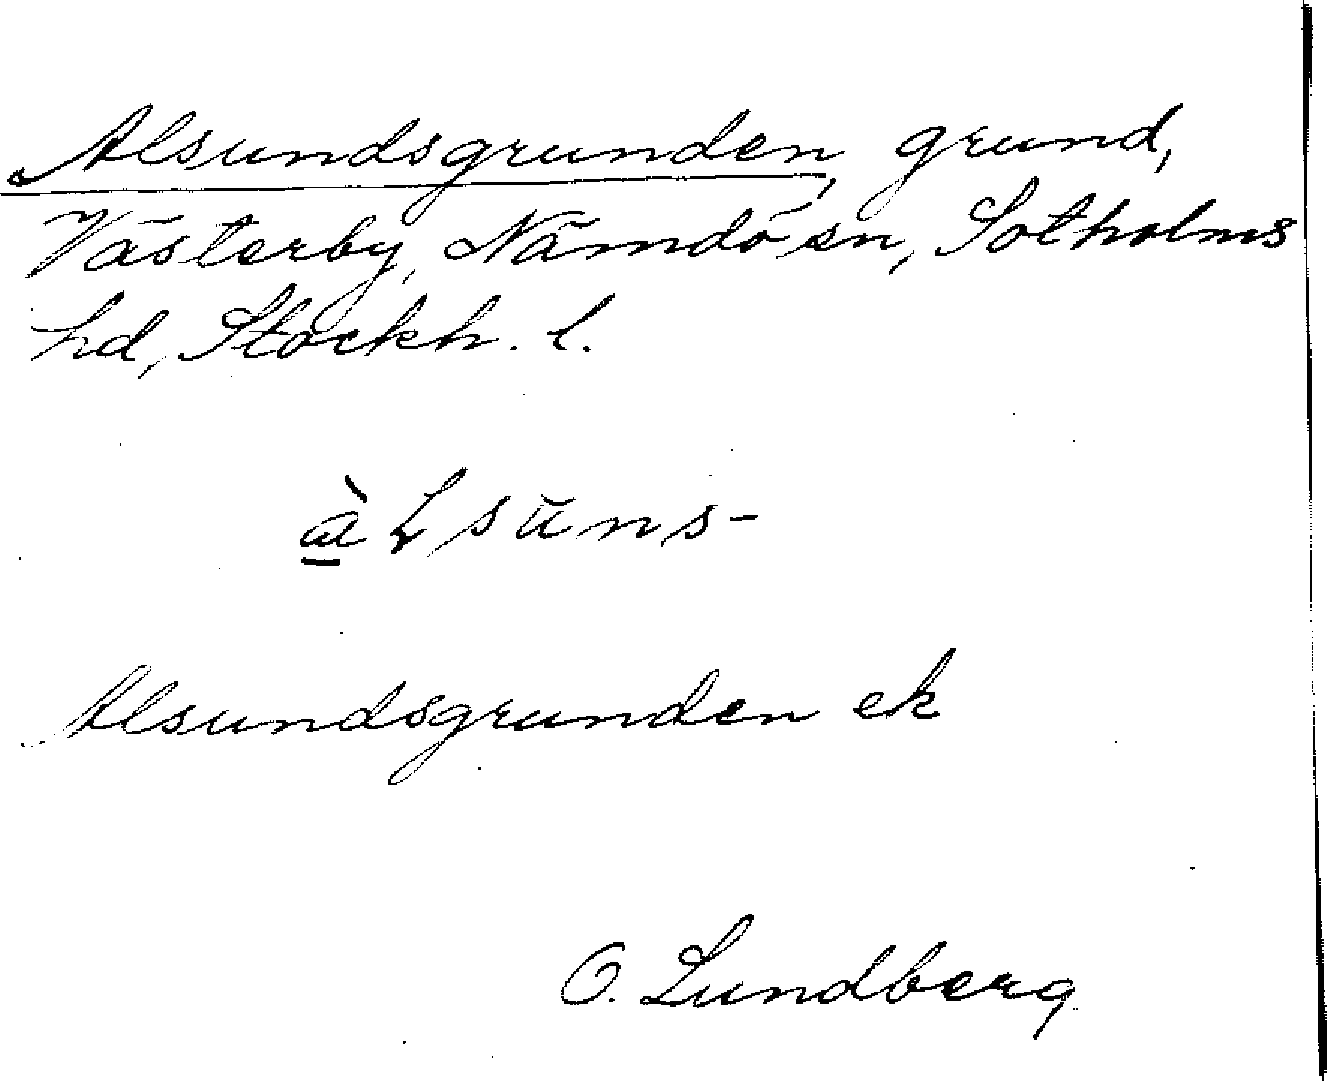 Alsundsgrunden, grund,
Västerby, Nämdö sn, Sotholms
hd, Stockh. l.
àLsuns-
Alsundsgrunden ek
O. Lundberg